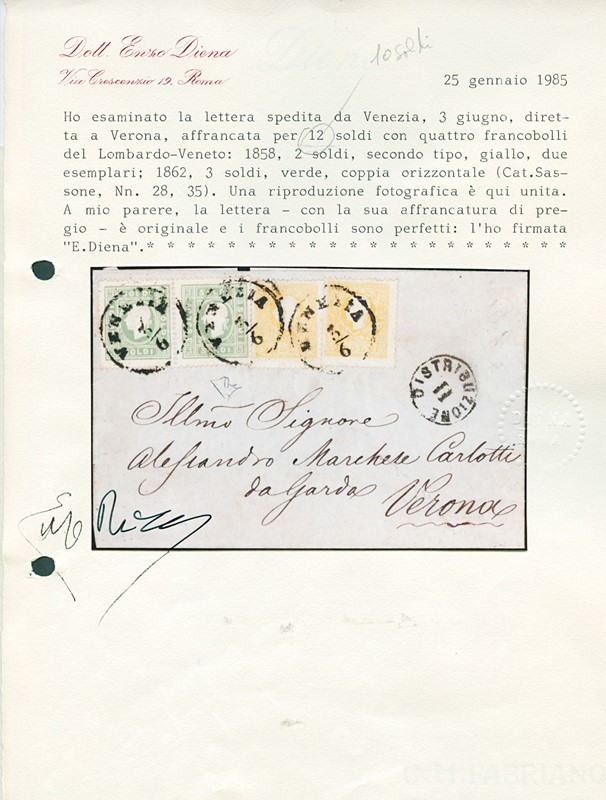 Dott. Enzo Diena
Via Crescenzio 19, Roma
10 soldi
25 gennaio 1985
Ho esaminato la lettera spedita da Venezia, 3 giugno, diret-
ta a Verona, affrancata per 12 soldi con quattro francobolli
del Lombardo-Veneto: 1858, 2 soldi, secondo tipo, giallo, due
esemplari; 1862, 3 soldi, verde, coppia orizzontale (Cat.Sas-
sone, Nn. 28, 35). Una riproduzione fotografica è qui unita.
A mio parere, la lettera - con la sua affrancatura di pre-
gio - è originale e i francobolli sono perfetti: l'ho firmata
"E.Diena".* * * * * * * * * * * * * * * * * * * * * *
VENEZIA
VENEZIA
VENEZIA
SOLDI
DISTRIBUZIONE
II
Illmo Signore
Alessandro Marchese Carlotti
da Garda
Verona
FABRIANO